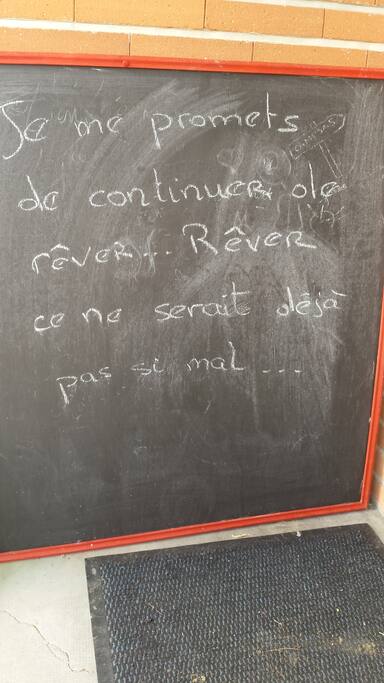 Je me promets
de continuer de
rêver... Rêver
ce ne serait déjà
pas si mal ...